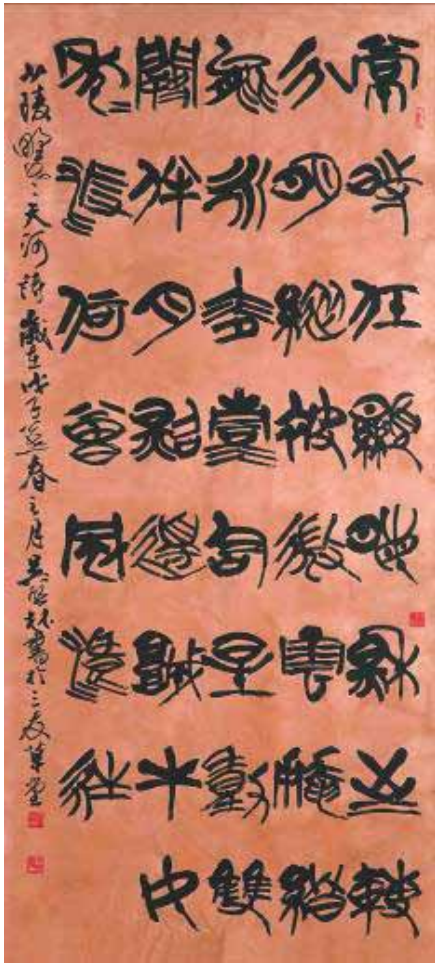 常時任顯晦秋至轉
分明縱被微雲掩終
能永夜清含星動雙
闕伴月落邊城牛女
年〻渡何曾風浪生
少陵野老之天河詩歲在戊子孟春之月書於三友草堂